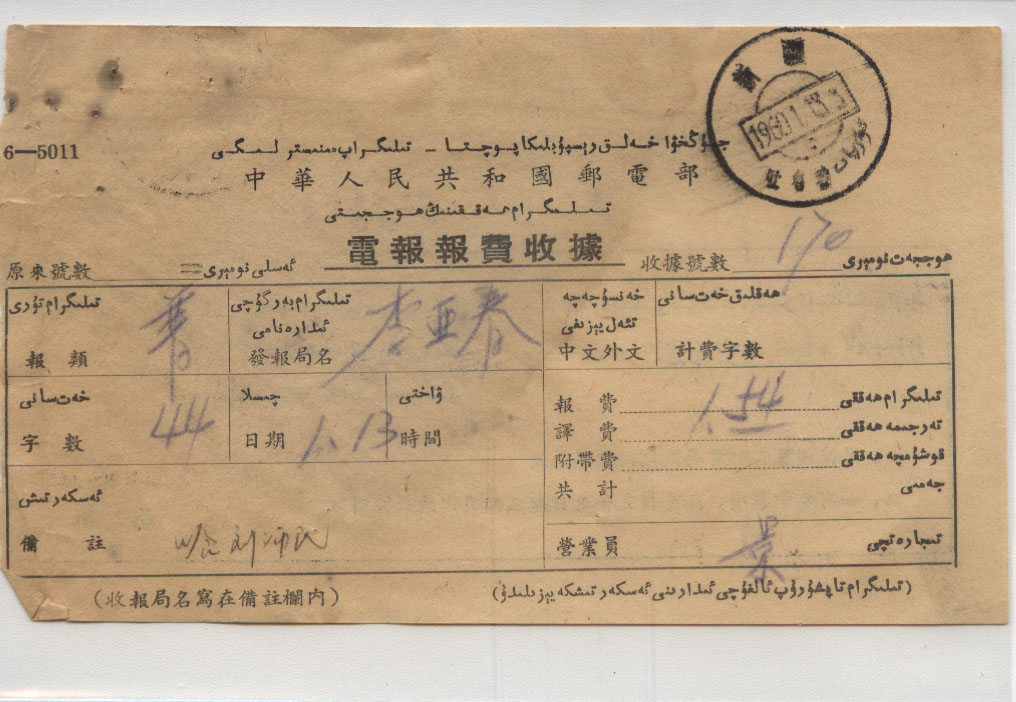 新疆
1960.1.13.
6—5011
جۇڭخۇا خەلق رېسپۇبلىكا پوچتا - تىلىگراپ مىنىستىرلىگى
中華人民共和國郵電部
تىلىگرام ھەققىنىڭ ھوججىتى
電報報費收據
原來號數 ئەسلى نومېرى 收據號數 170 ھوججەت نومېرى
تىلىگرام تۈرى
報類 普
تىلىگرام بەرگۈچى ئىدارە نامى
發報局名
خەنسۇچە چەتئەل يېزىغى
中文外文
ھەقلىق خەت سانى
計費字數
خەت سانى
字數 44
چىسلا
日期 1.13
ۋاختى
時間
報費 1.54 تىلىگرام ھەققى
譯費 تەرجىمە ھەققى
附帶費 قوشۇمچە ھەققى
共計 جەمى
ئەسكەرتىش
備註
營業員 تىجارەتچى
(收報局名寫在備註欄內)
(تىلىگرام تاپشۇرۇپ ئالغۇچى ئىدارىنى ئەسكەرتىشكە يېزىلىدۇ)